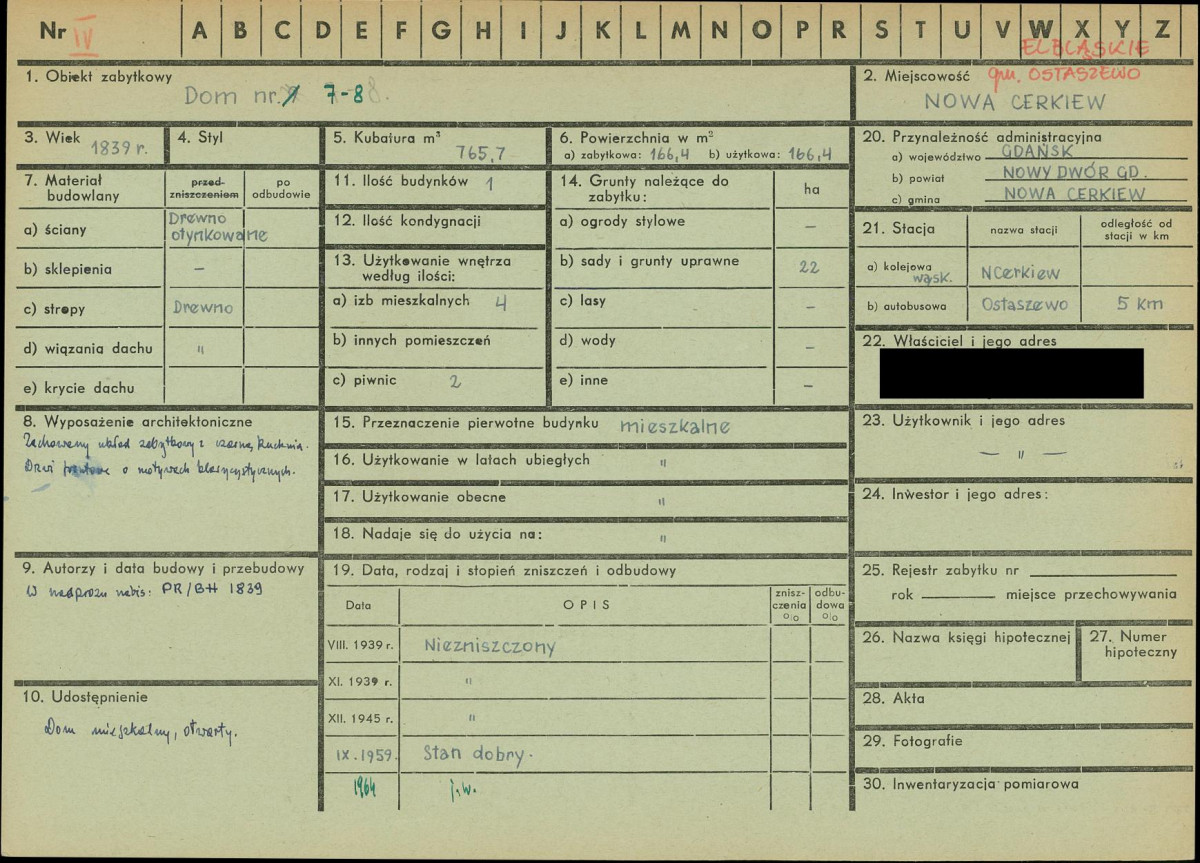 Nr IV A B C D E F G H I J K L M N O P R S T U V W X Y Z
ELBLĄSKIE
1. Obiekt zabytkowy
Dom nr. 7-8.
2. Miejscowość gm. OSTASZEWO
NOWA CERKIEW
3. Wiek 1839 r.
4. Styl
5. Kubatura m³
765,7
6. Powierzchnia w m²
a) zabytkowa: 166,4 b) użytkowa: 166,4
20. Przynależność administracyjna
a) województwo GDAŃSK
b) powiat NOWY DWÓR GD.
c) gmina NOWA CERKIEW
7. Materiał budowlany
przed-zniszczeniem
po odbudowie
a) ściany Drewno otynkowalne
b) sklepienia –
c) stropy Drewno
d) wiązania dachu "
e) krycie dachu
11. Ilość budynków 1
12. Ilość kondygnacji
13. Użytkowanie wnętrza
według ilości:
a) izb mieszkalnych 4
b) innych pomieszczeń
c) piwnic 2
14. Grunty należące do zabytku:
ha
a) ogrody stylowe –
b) sady i grunty uprawne 22
c) lasy –
d) wody –
e) inne –
21. Stacja
nazwa stacji
odległość od stacji w km
a) kolejowa wąsk. NCerkiew
b) autobusowa Ostaszewo 5 km
22. Właściciel i jego adres
8. Wyposażenie architektoniczne
Zachowany układ zabytkowy z czarną kuchnią.
Drzwi frontowe o motywach klasycystycznych.
15. Przeznaczenie pierwotne budynku mieszkalne
16. Użytkowanie w latach ubiegłych "
17. Użytkowanie obecne "
18. Nadaje się do użycia na: "
23. Użytkownik i jego adres
– " –
24. Inwestor i jego adres:
9. Autorzy i data budowy i przebudowy
W nadprożu napis: PR/BH 1839
19. Data, rodzaj i stopień zniszczeń i odbudowy
Data
OPIS
znisz-czenia %
odbu-dowa %
VIII. 1939 r. Niezniszczony
XI. 1939 r. "
XII. 1945 r. "
IX. 1959. Stan dobry.
1964 j.w.
25. Rejestr zabytku nr
rok miejsce przechowywania
26. Nazwa księgi hipotecznej
27. Numer hipoteczny
10. Udostępnienie
Dom mieszkalny, otwarty.
28. Akta
29. Fotografie
30. Inwentaryzacja pomiarowa